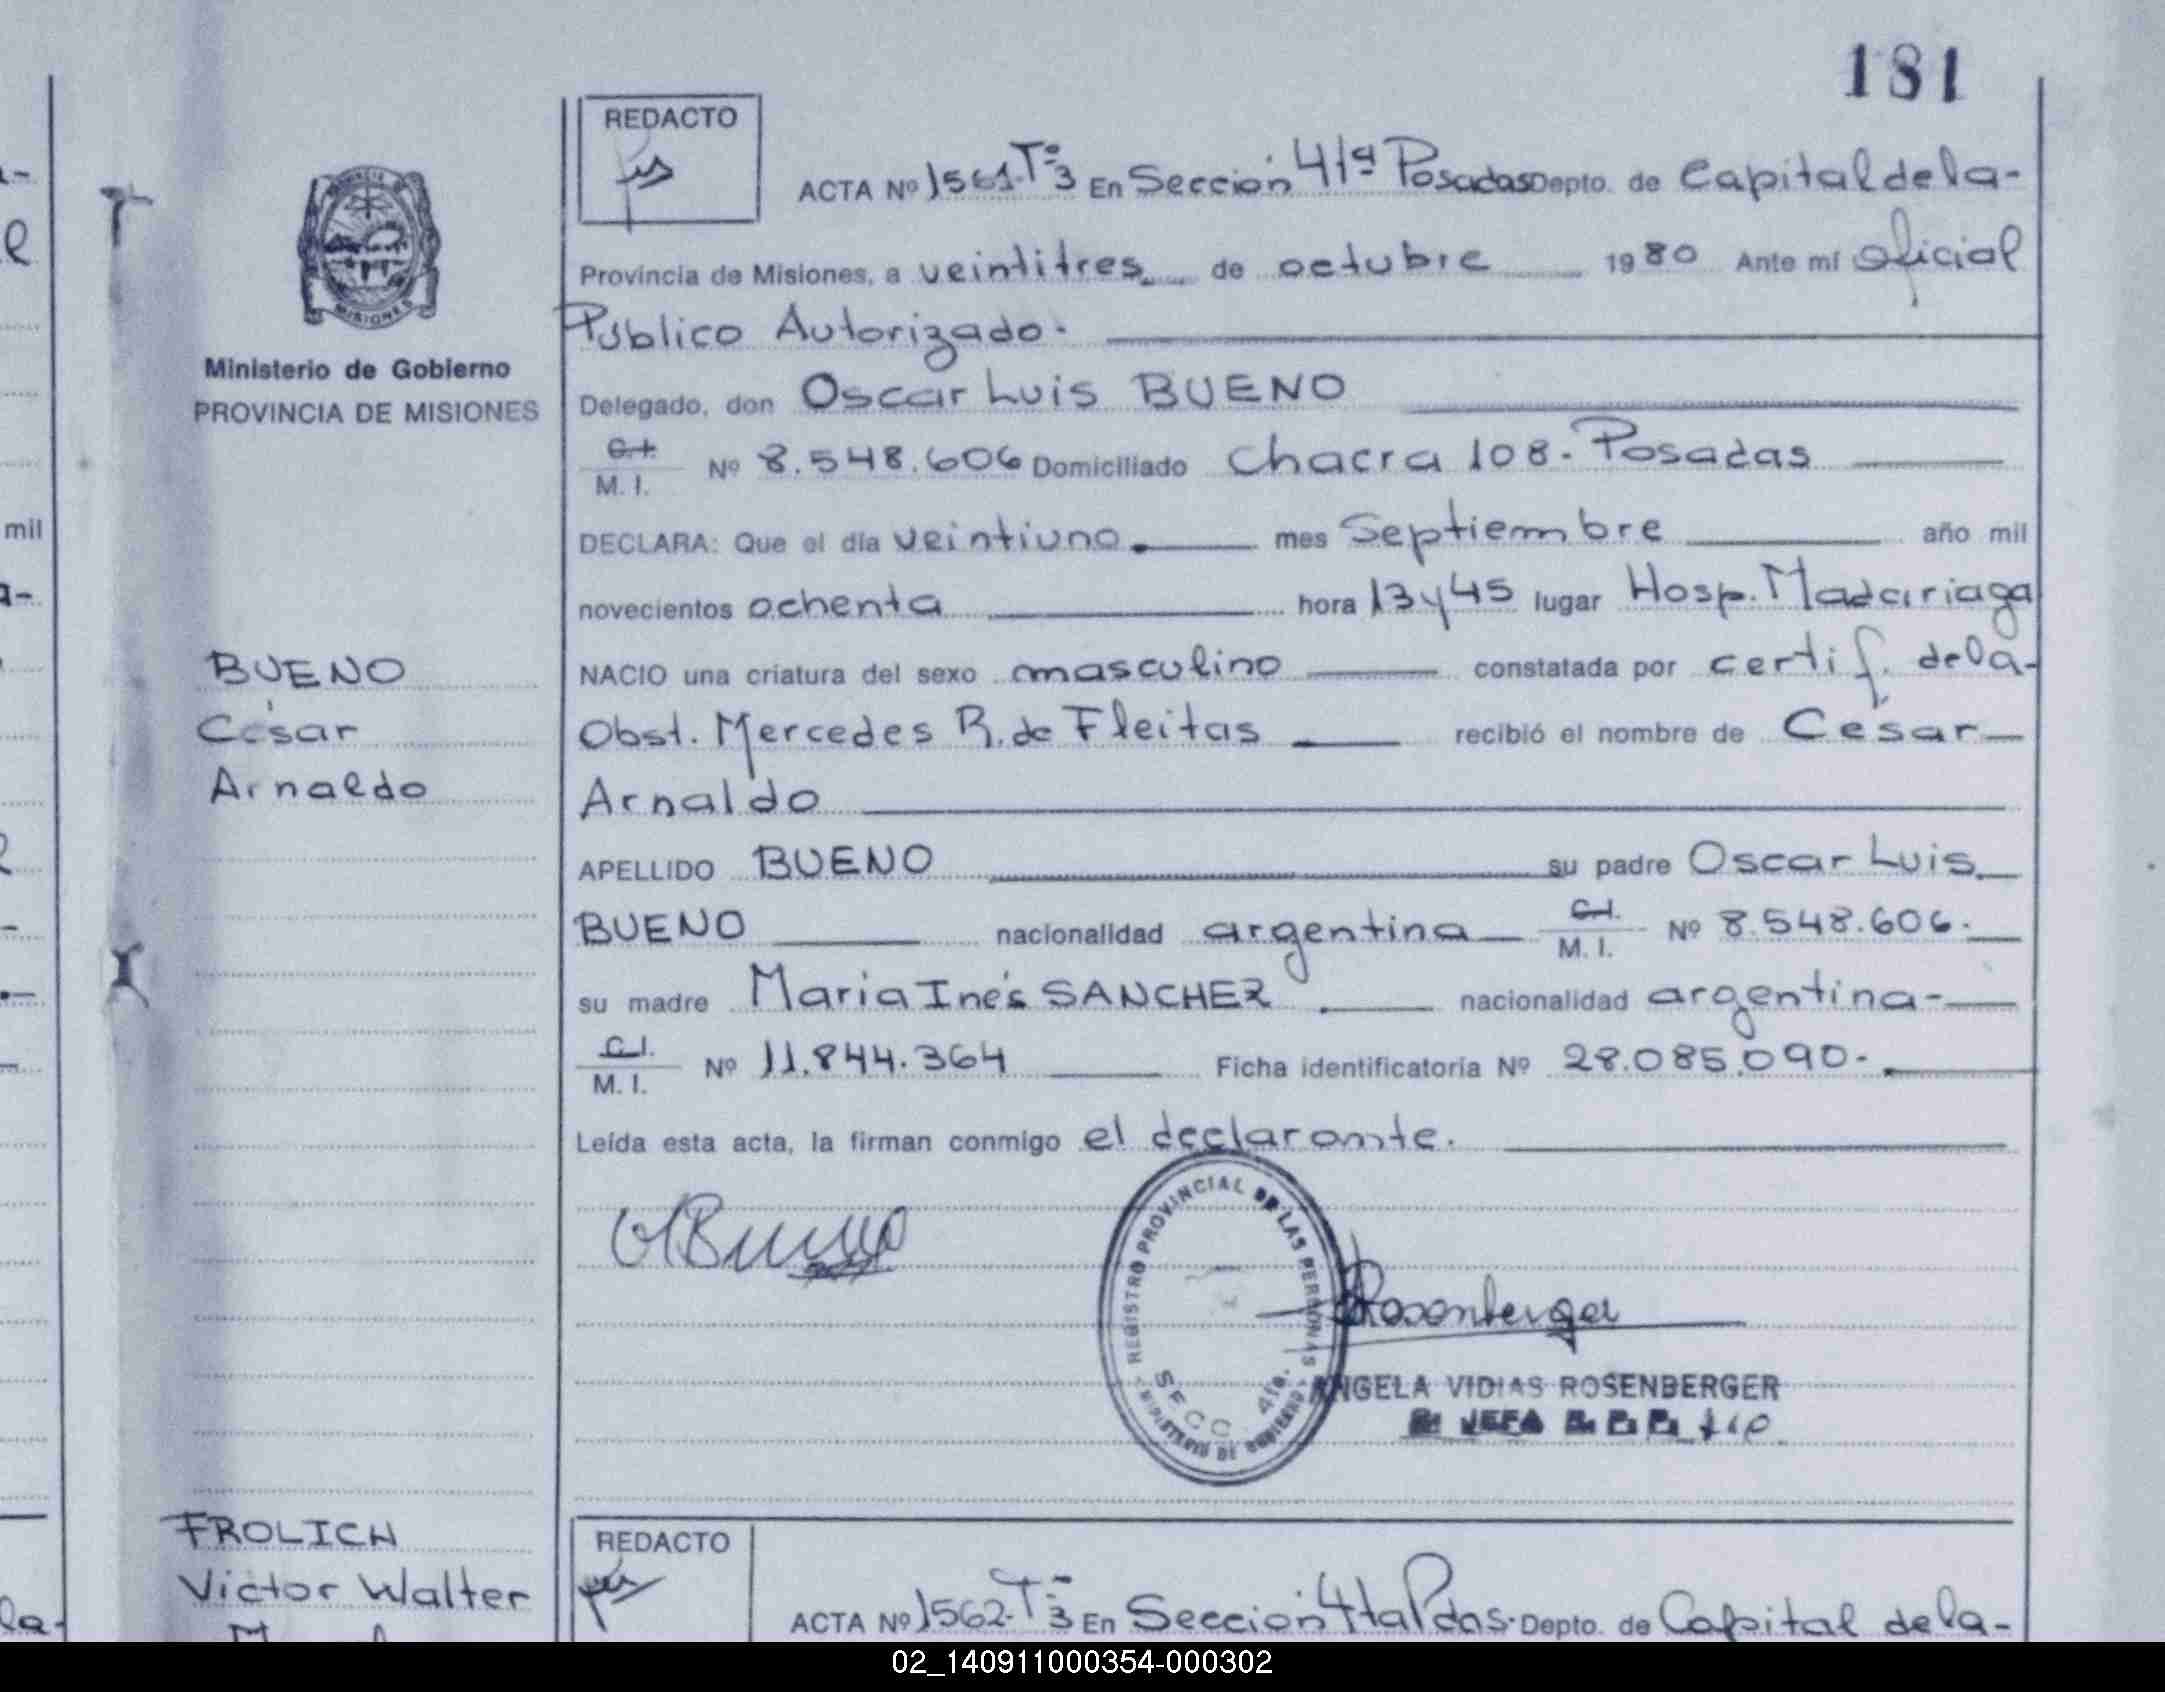 181
REDACTO
ACTA Nº 1561-Tº3 En Sección 4ta Posadas Depto. de Capital de la-
Provincia de Misiones, a veintitres de octubre 1980 Ante mí Oficial
Público Autorizado.
Delegado, don Oscar Luis BUENO
C.I.
M. I. Nº 8.548.606 Domiciliado Chacra 108. Posadas
DECLARA: Que el día veintiuno. mes Septiembre año mil
novecientos ochenta hora 13 y 45 lugar Hosp. Madariaga
NACIO una criatura del sexo masculino constatada por certif. de la-
Obst. Mercedes R. de Fleitas recibió el nombre de César
Arnaldo
APELLIDO BUENO su padre Oscar Luis
BUENO nacionalidad argentina C.I. M. I. Nº 8.548.606.
su madre Maria Inés SANCHEZ nacionalidad argentina-
C.I.
M. I. Nº 11.844.364 Ficha identificatoria Nº 28.085.090.
Leída esta acta, la firman conmigo el declarante.
OLBueno
Rosenberger
REGISTRO PROVINCIAL DE LAS PERSONAS
SECC 4ta.
MINISTERIO DE GOBIERNO
ANGELA VIDIAS ROSENBERGER
JEFA
MISIONES
Ministerio de Gobierno
PROVINCIA DE MISIONES
BUENO
César
Arnaldo
FROLICH
Victor Walter
REDACTO
ACTA Nº 1562-Tº3 En Sección 4ta Pdas. Depto. de Capital de la-
mil
la-
02_140911000354-000302